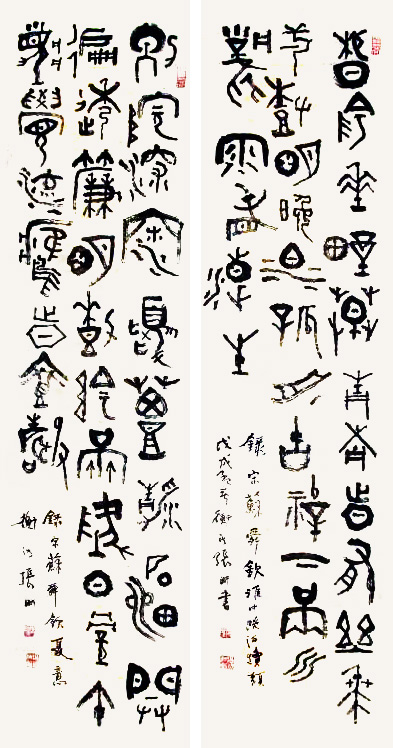 春陰垂野草青青時有幽花
一樹明晚泊孤舟古祠下滿川
風雨看潮生
錄宋蘇舜欽淮中晚泊犢頭
戊戌 衡水張 書
別院深深夏簟清石榴開
遍透簾明樹陰滿地日當午
夢覺流鶯時壹聲
錄宋蘇舜欽夏意
衡水張